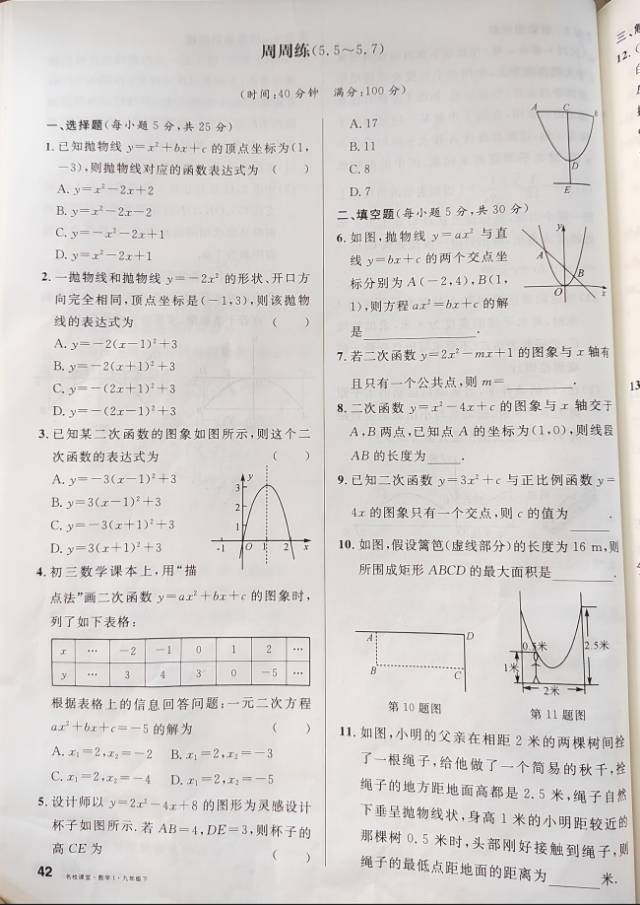 周周练(5.5～5.7)
(时间:40分钟 满分:100分)
一、选择题(每小题5分,共25分)
1. 已知抛物线 y=x²+bx+c 的顶点坐标为(1,
-3),则抛物线对应的函数表达式为 ( )
A. y=x²-2x+2
B. y=x²-2x-2
C. y=-x²-2x+1
D. y=x²-2x+1
2. 一抛物线和抛物线 y=-2x² 的形状、开口方
向完全相同,顶点坐标是(-1,3),则该抛物
线的表达式为 ( )
A. y=-2(x-1)²+3
B. y=-2(x+1)²+3
C. y=-(2x+1)²+3
D. y=-(2x-1)²+3
3. 已知某二次函数的图象如图所示,则这个二
次函数的表达式为 ( )
A. y=-3(x-1)²+3
B. y=3(x-1)²+3
C. y=-3(x+1)²+3
D. y=3(x+1)²+3
y
3
2
1
-1 O 1 2 x
4. 初三数学课本上,用“描
点法”画二次函数 y=ax²+bx+c 的图象时,
列了如下表格:
x … -2 -1 0 1 2 …
y … 3 4 3 0 -5 …
根据表格上的信息回答问题:一元二次方程
ax²+bx+c=-5 的解为 ( )
A. x₁=2,x₂=-2 B. x₁=2,x₂=-3
C. x₁=2,x₂=-4 D. x₁=2,x₂=-5
5. 设计师以 y=2x²-4x+8 的图形为灵感设计
杯子如图所示. 若 AB=4,DE=3,则杯子的
高 CE 为 ( )
42 名校课堂·数学1·九年级下
A. 17
B. 11
C. 8
D. 7
A C
D
E
二、填空题(每小题5分,共30分)
6. 如图,抛物线 y=ax² 与直
线 y=bx+c 的两个交点坐
标分别为 A(-2,4),B(1,
1),则方程 ax²=bx+c 的解
是________.
y
A
B
O x
7. 若二次函数 y=2x²-mx+1 的图象与 x 轴有
且只有一个公共点,则 m=________.
8. 二次函数 y=x²-4x+c 的图象与 x 轴交于
A,B 两点,已知点 A 的坐标为(1,0),则线段
AB 的长度为____.
9. 已知二次函数 y=3x²+c 与正比例函数 y=
4x 的图象只有一个交点,则 c 的值为____.
10. 如图,假设篱笆(虚线部分)的长度为 16 m,则
所围成矩形 ABCD 的最大面积是________.
A D
B C
第10题图
0.5米 2.5米
1米
2米
第11题图
11. 如图,小明的父亲在相距 2 米的两棵树间拴
了一根绳子,给他做了一个简易的秋千,拴
绳子的地方距地面高都是 2.5 米,绳子自然
下垂呈抛物线状,身高 1 米的小明距较近的
那棵树 0.5 米时,头部刚好接触到绳子,则
绳子的最低点距地面的距离为______米.
三、
12.
13